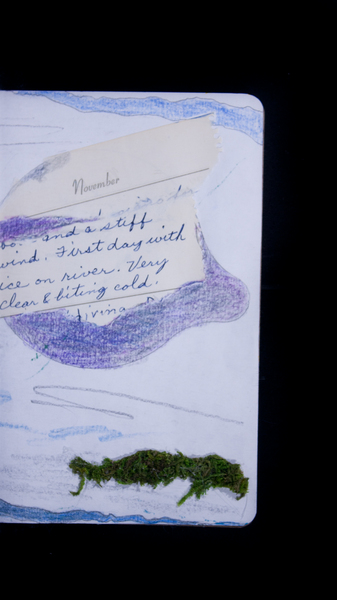 November
and a stiff
wind. First day with
ice on river. Very
clear & biting cold.